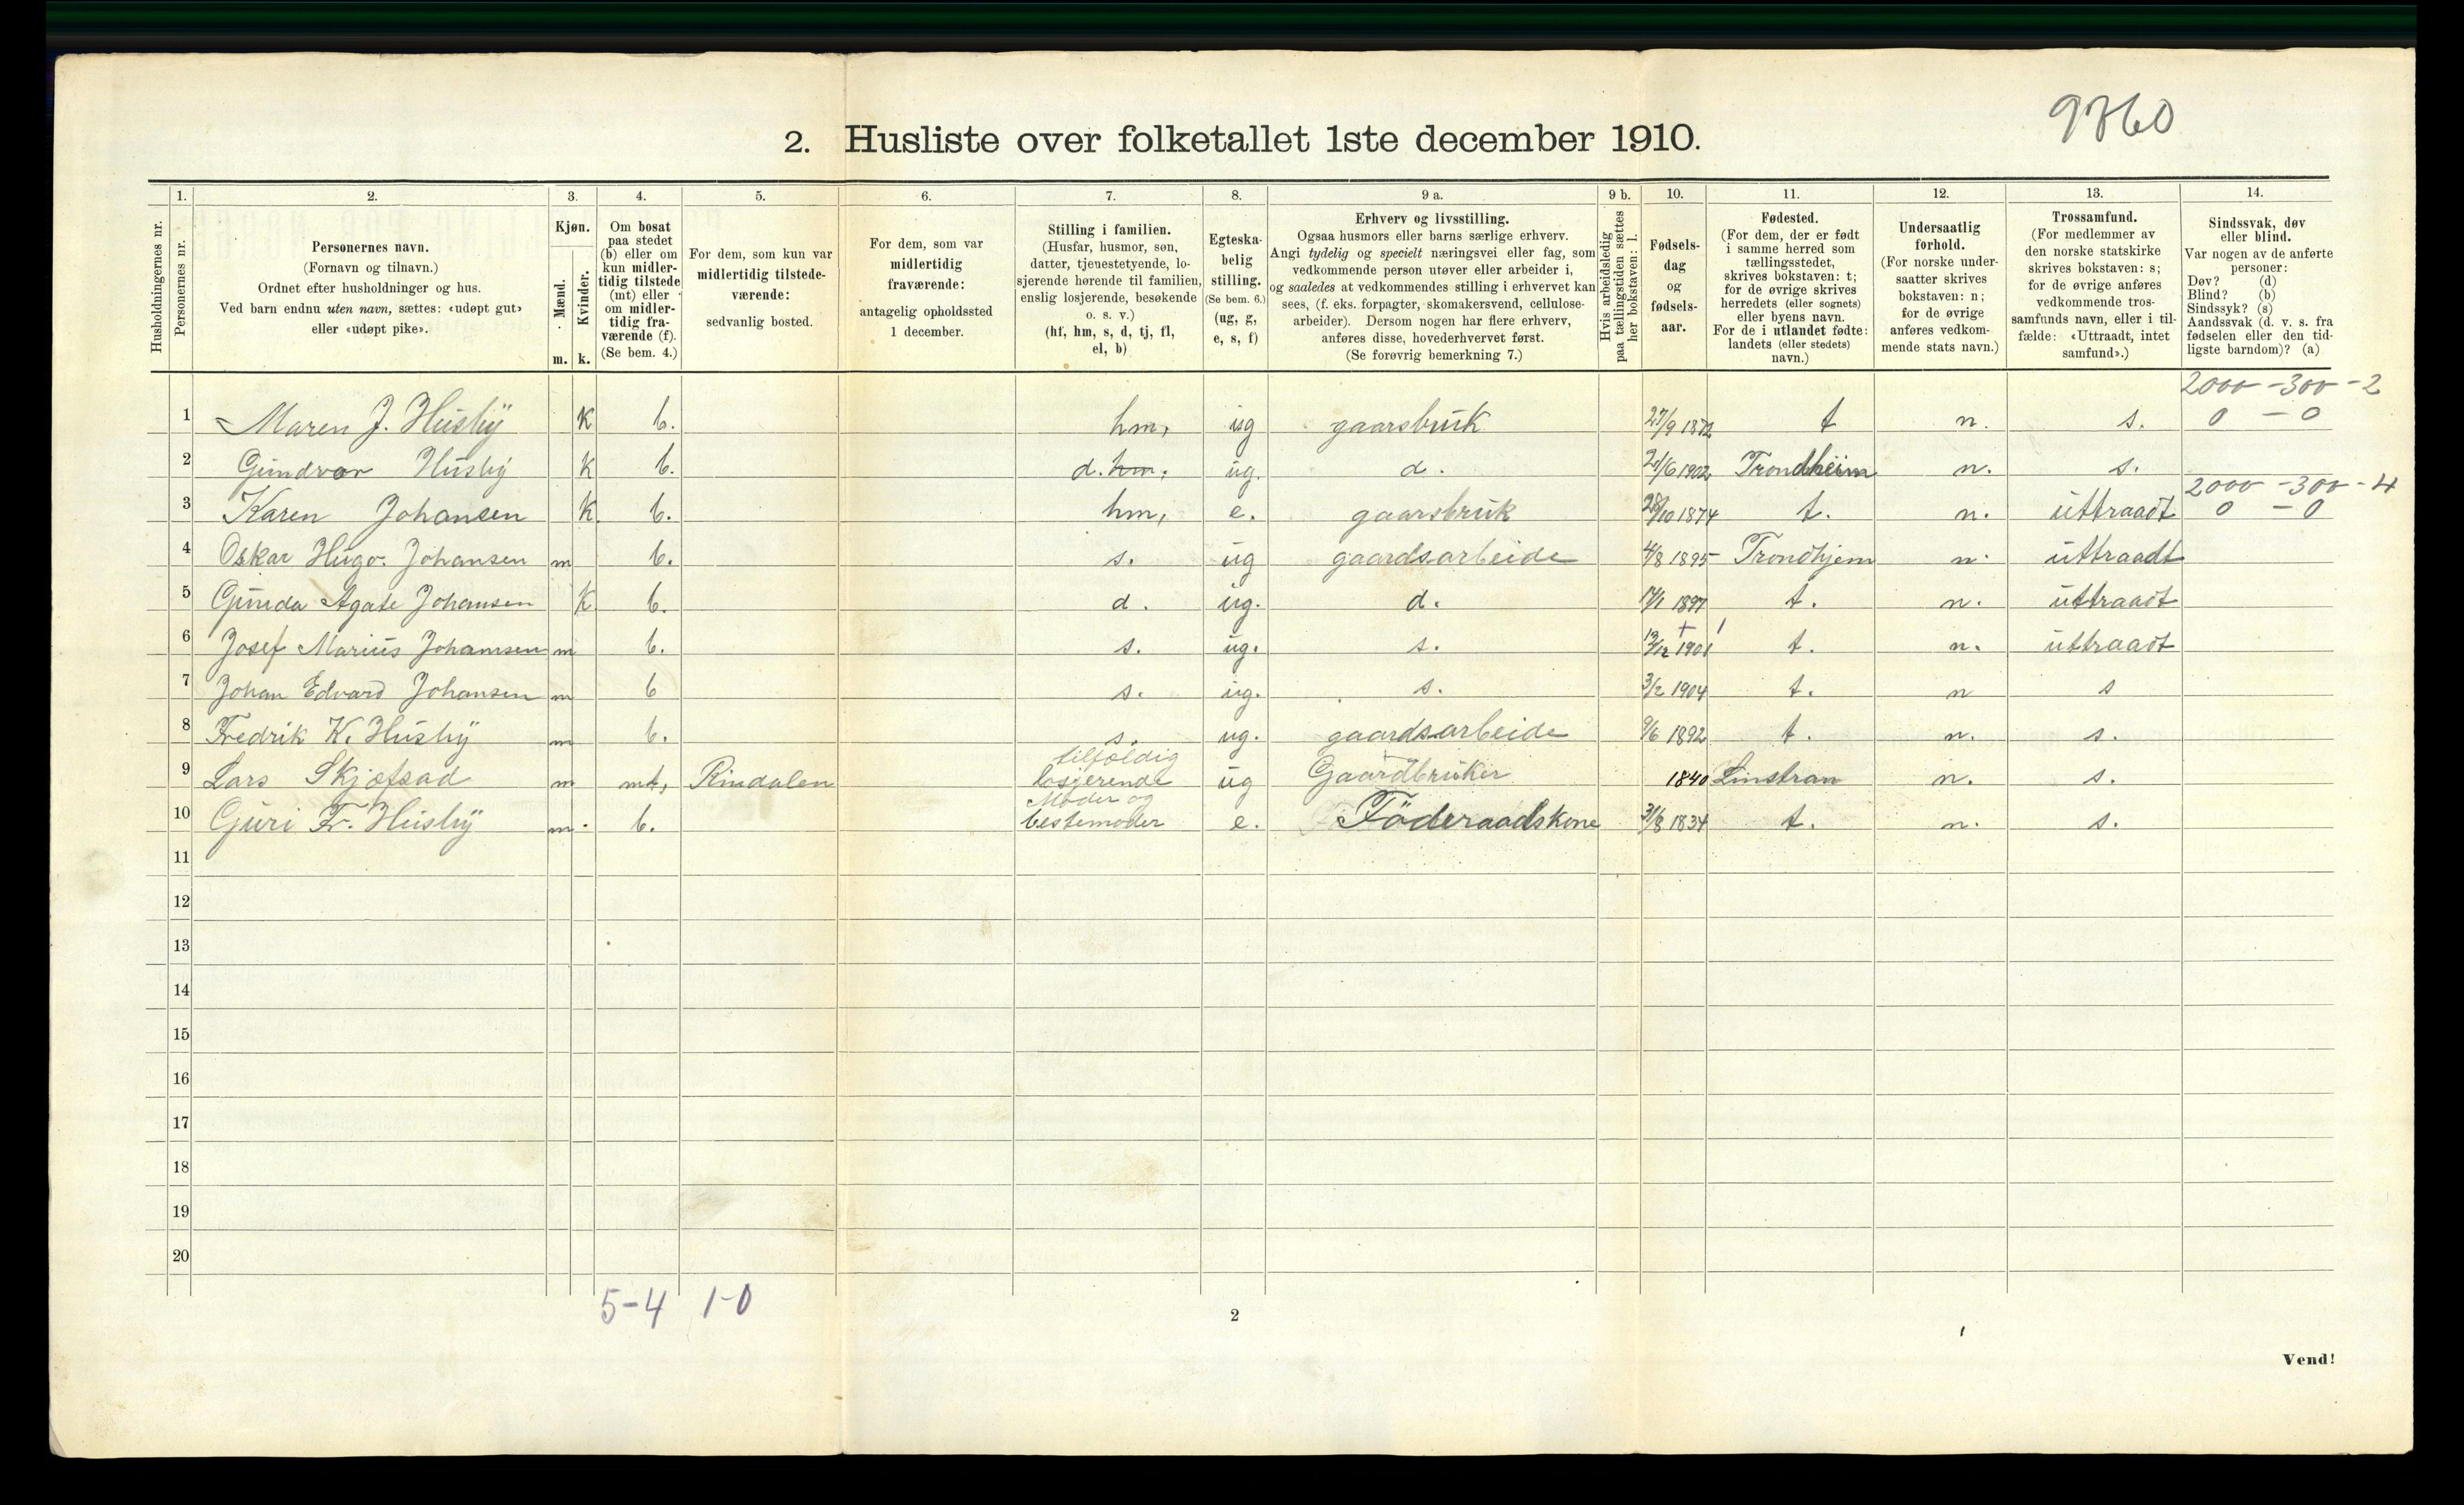 9760
2. Husliste over folketallet 1ste december 1910.
1. 2. 3. 4. 5. 6. 7. 8. 9 a. 9 b. 10. 11. 12. 13. 14.
Husholdningernes nr.
Personernes nr.
Personernes navn.
(Fornavn og tilnavn.)
Ordnet efter husholdninger og hus.
Ved barn endnu uten navn, sættes: «udøpt gut»
eller «udøpt pike».
Kjøn.
Mænd.
Kvinder.
m. k.
Om bosat
paa stedet
(b) eller om
kun midler-
tidig tilstede
(mt) eller
om midler-
tidig fra-
værende (f).
(Se bem. 4.)
For dem, som kun var
midlertidig tilstede-
værende:
sedvanlig bosted.
For dem, som var
midlertidig
fraværende:
antagelig opholdssted
1 december.
Stilling i familien.
(Husfar, husmor, søn,
datter, tjenestetyende, lo-
sjerende hørende til familien,
enslig losjerende, besøkende
o. s. v.)
(hf, hm, s, d, tj, fl,
el, b)
Egteska-
belig
stilling.
(Se bem. 6.)
(ug, g,
e, s, f)
Erhverv og livsstilling.
Ogsaa husmors eller barns særlige erhverv.
Angi tydelig og specielt næringsvei eller fag, som
vedkommende person utøver eller arbeider i,
og saaledes at vedkommendes stilling i erhvervet kan
sees, (f. eks. forpagter, skomakersvend, cellulose-
arbeider). Dersom nogen har flere erhverv,
anføres disse, hovederhvervet først.
(Se forøvrig bemerkning 7.)
Hvis arbeidsledig
paa tællingstiden sættes
her bokstaven: l.
Fødsels-
dag
og
fødsels-
aar.
Fødested.
(For dem, der er født
i samme herred som
tællingsstedet,
skrives bokstaven: t;
for de øvrige skrives
herredets (eller sognets)
eller byens navn.
For de i utlandet fødte:
landets (eller stedets)
navn.)
Undersaatlig
forhold.
(For norske under-
saatter skrives
bokstaven: n;
for de øvrige
anføres vedkom-
mende stats navn.)
Trossamfund.
(For medlemmer av
den norske statskirke
skrives bokstaven: s;
for de øvrige anføres
vedkommende tros-
samfunds navn, eller i til-
fælde: «Uttraadt, intet
samfund».)
Sindssvak, døv
eller blind.
Var nogen av de anførte
personer:
Døv? (d)
Blind? (b)
Sindssyk? (s)
Aandssvak (d. v. s. fra
fødselen eller den tid-
ligste barndom)? (a)
2000 - 300 - 2
1 Maren J. Husby k b. hm, ug gaarsbruk 27/9 1872 t n. s. 0 - 0
2 Gundvor Husby k b. d. hm. ug. d. 20/6 1902 Trondheim n. s.
2000 - 300 - 4
3 Karen Johansen k. b. hm, e. gaarsbruk 28/10 1874 t. n. uttraadt 0 - 0
4 Oskar Hugo. Johansen m b. s. ug gaardsarbeide 4/8 1895 Trondhjem n. uttraadt
5 Gunda Agate Johansen k b. d. ug. d. 1897 t. n. uttraadt
6 Josef Marius Johansen m b. s. ug. s. 13/12 1901 t. n. uttraadt
7 Johan Edvard Johansen m b s. ug. s. 3/2 1904 t. n s
8 Fredrik K. Husby m b. s. ug. gaardsarbeide 9/6 1892 t. n. s.
tilfoldig
9 Lars m mt, Rindalen losjerende ug Gaardbruker 1840 Linstran n. s.
Moder og
10 Guri Fr. Husby m. b. bestemoder e. Föderaadskone 31/8 1834 t. n. s.
11
12
13
14
15
16
17
18
19
20
5-4 1-0
2
Vend!